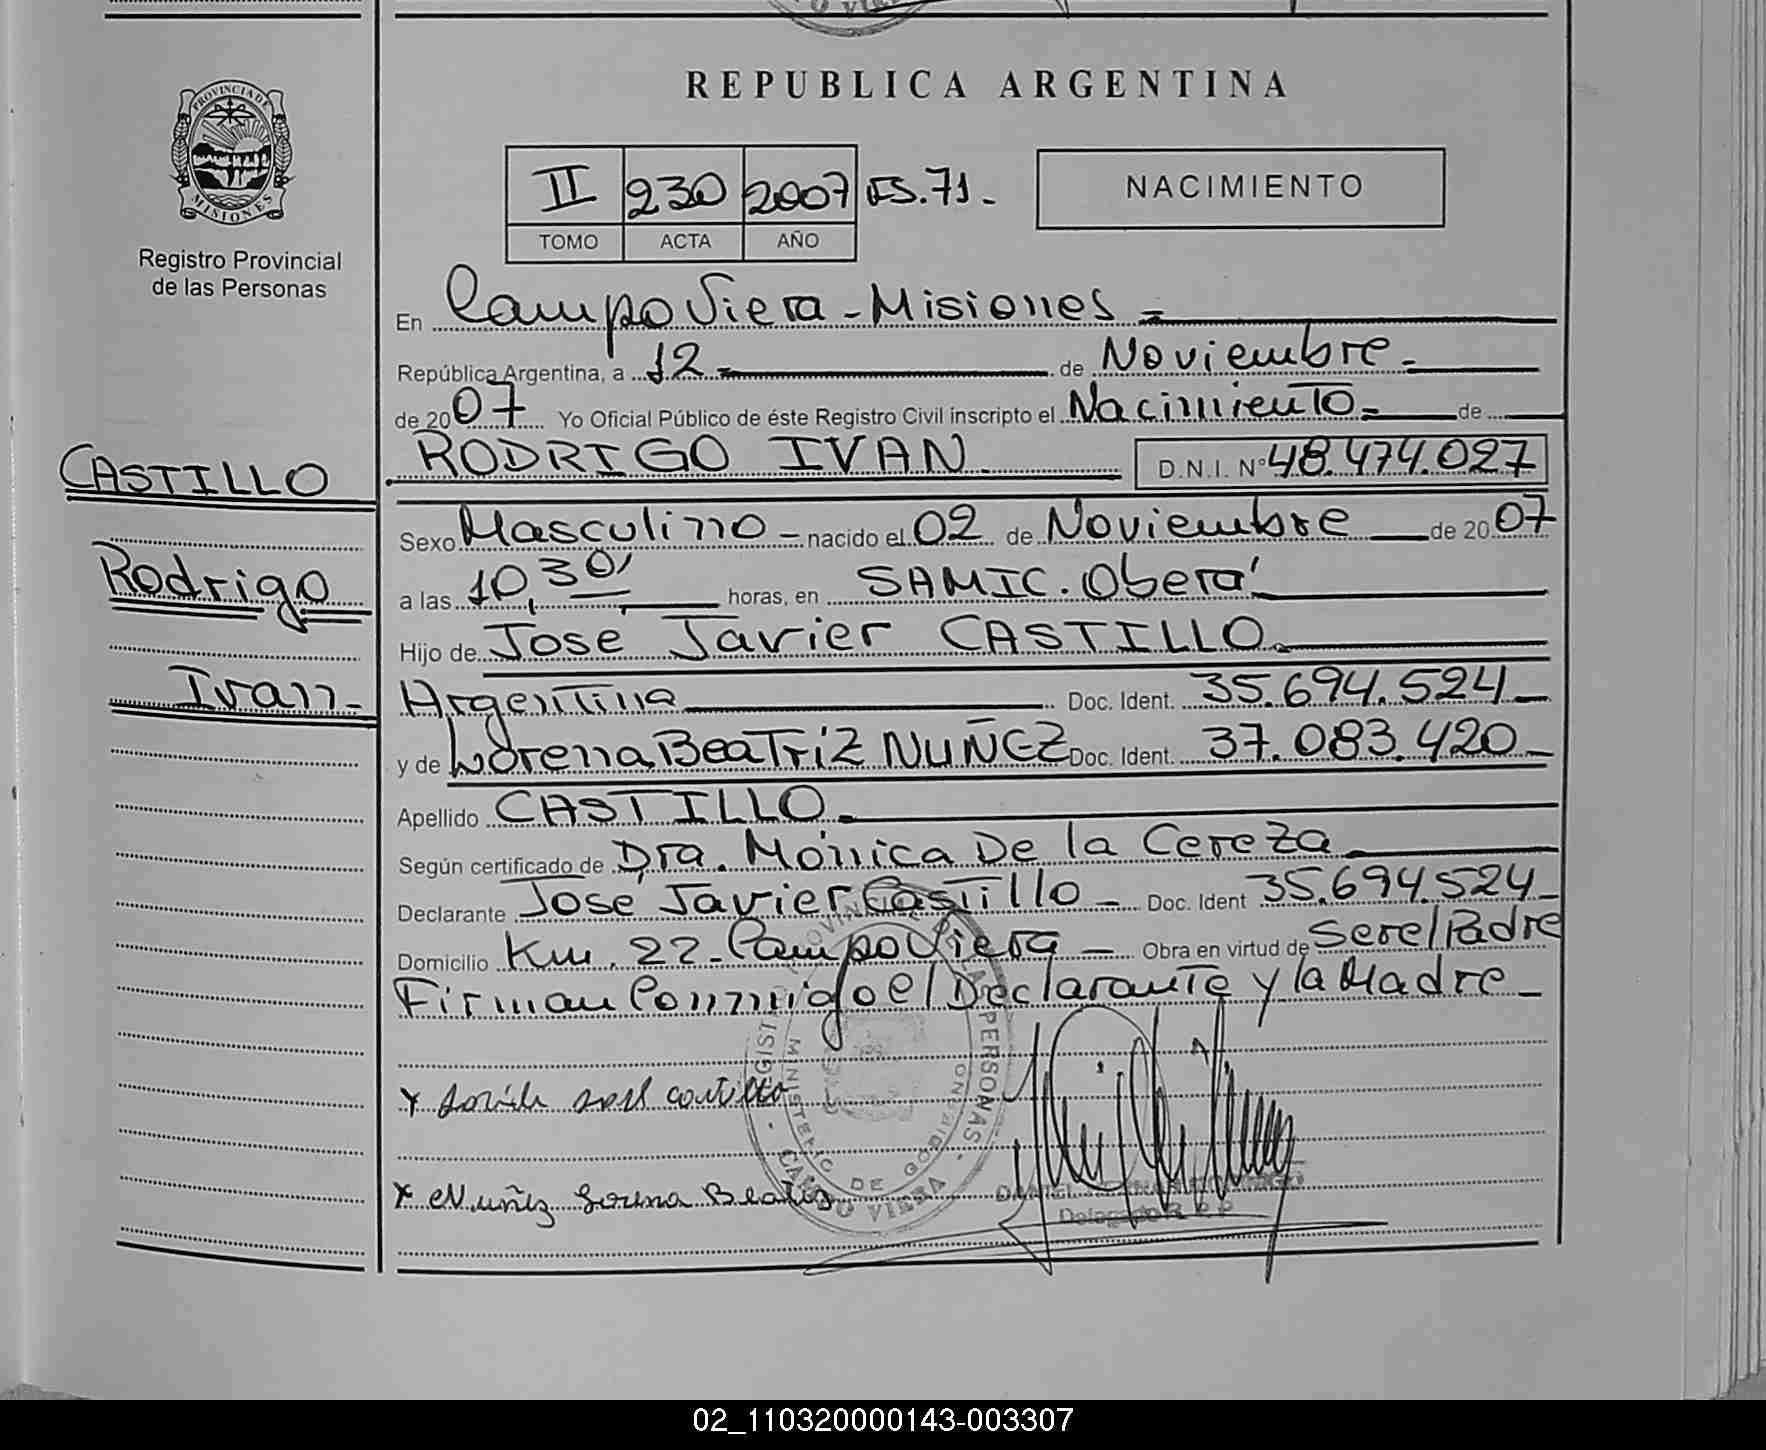 REPUBLICA ARGENTINA
PROVINCIA DE
MISIONES
Registro Provincial
de las Personas
II 230 2007 FS.71.-
TOMO ACTA AÑO
NACIMIENTO
En Campo Viera - Misiones =
República Argentina, a 12 = de Noviembre -
de 2007 Yo Oficial Público de éste Registro Civil inscripto el Nacimiento = de
CASTILLO
RODRIGO IVAN D.N.I. N° 48.474.027
Sexo Masculino - nacido el 02 de Noviembre de 2007
Rodrigo
a las 10,30' horas, en SAMIC. Oberá
Hijo de José Javier CASTILLO.
Ivan -
Argentina Doc. Ident. 35.694.524 -
y de Lorena BeaTriz NUÑEZ Doc. Ident. 37.083.420 -
Apellido CASTILLO.
Según certificado de Dra. Mónica De la Cereza
Declarante José Javier Castillo - Doc. Ident 35.694.524 -
Domicilio Km. 22 - Campo Viera - Obra en virtud de Ser el Padre
Firman Conmigo el Declarante y la Madre -
x Nuñez Lorena Beatriz
MINISTERIO DE GOBIERNO
PERSONAS
CAMPO VIERA
Delegado R. P. P.
02_110320000143-003307